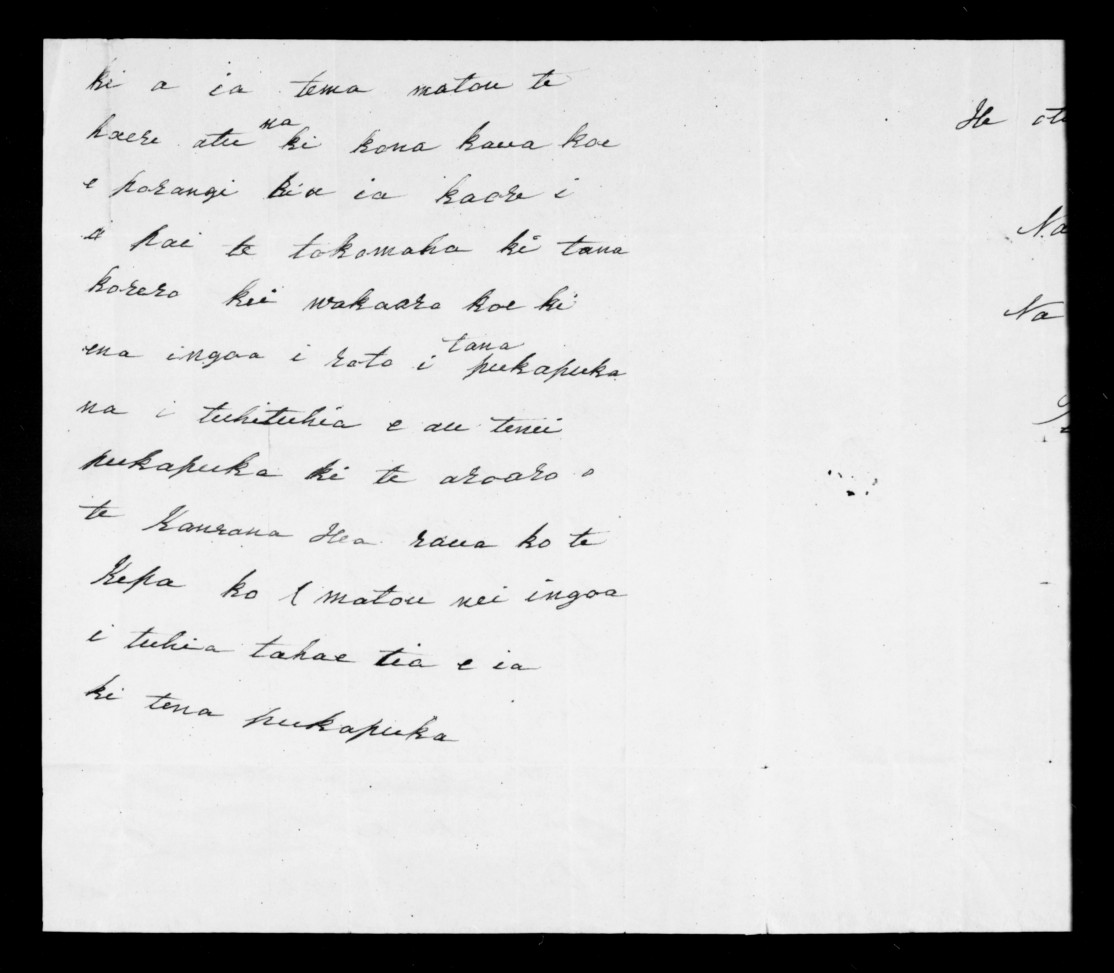 ki a ia tema matou te
haere atu na ki kona kaua koe
e porangi kia ia kaore i
a pai te tokomaha ki tana
korero kei wakaaro koe ki
ena ingoa i roto i tana pukapuka
na i tuhituhia e au tenei
pukapuka ki te aroaro o
te Kaurana Hea raua ko te
Kepa ko matou nei ingoa
i tuhia tahae tia e ia
ki tena pukapuka
He oti
Na
Na